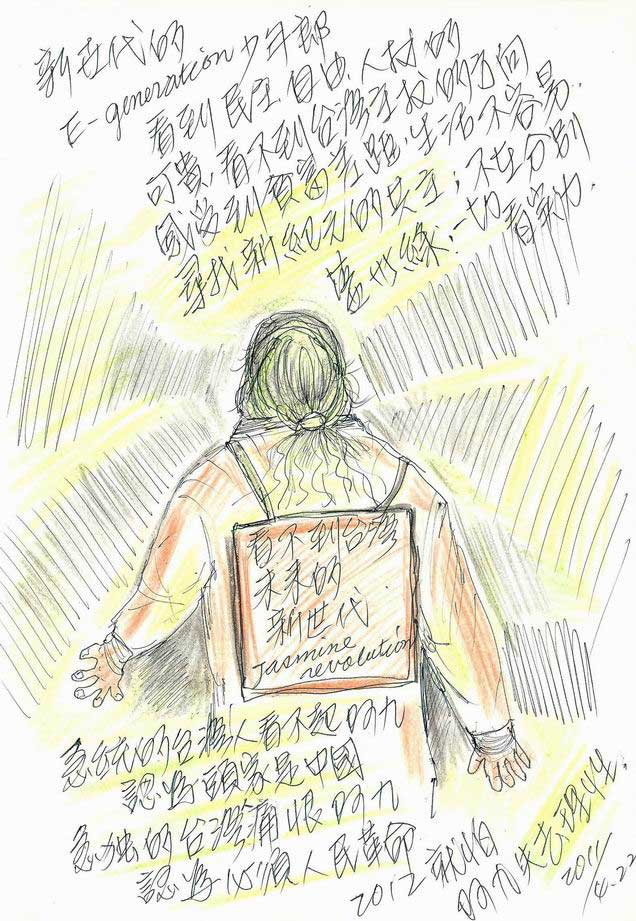 新世代的
E-generation少年郎
看到民主自由、人材的
可貴,看不到台灣主权的方向
感受到貧富差距,生活不容易.
尋找新紀元的共主;不在分別
藍綠.一切看實力.
看不到台灣
未来的
新世代.
Jasmine
revolution
急統的台灣人看不起阿九
認為頭家是中國
急独的台灣痛恨阿九
認為必須人民革命
2012就怕
阿九失去理性.
2011
4.22